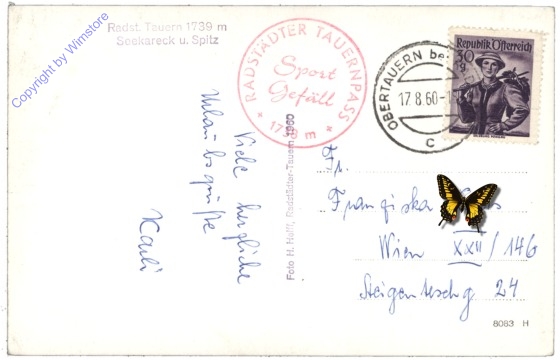 Radst. Tauern 1739 m
Seekareck u. Spitz
Copyright by Wimstore
RADSTÄDTER TAUERNPASS
Sport
Gefäll
* 1739 m *
OBERTAUERN bei
17.8.60-1
C
Republik Österreich
30
g
Viele herzliche
Urlaubsgrüße
Karli
Foto H. Höfl, Radstädter-Tauern 1960
Fr.
Franziska
Wien XXII/146
24
8083 H